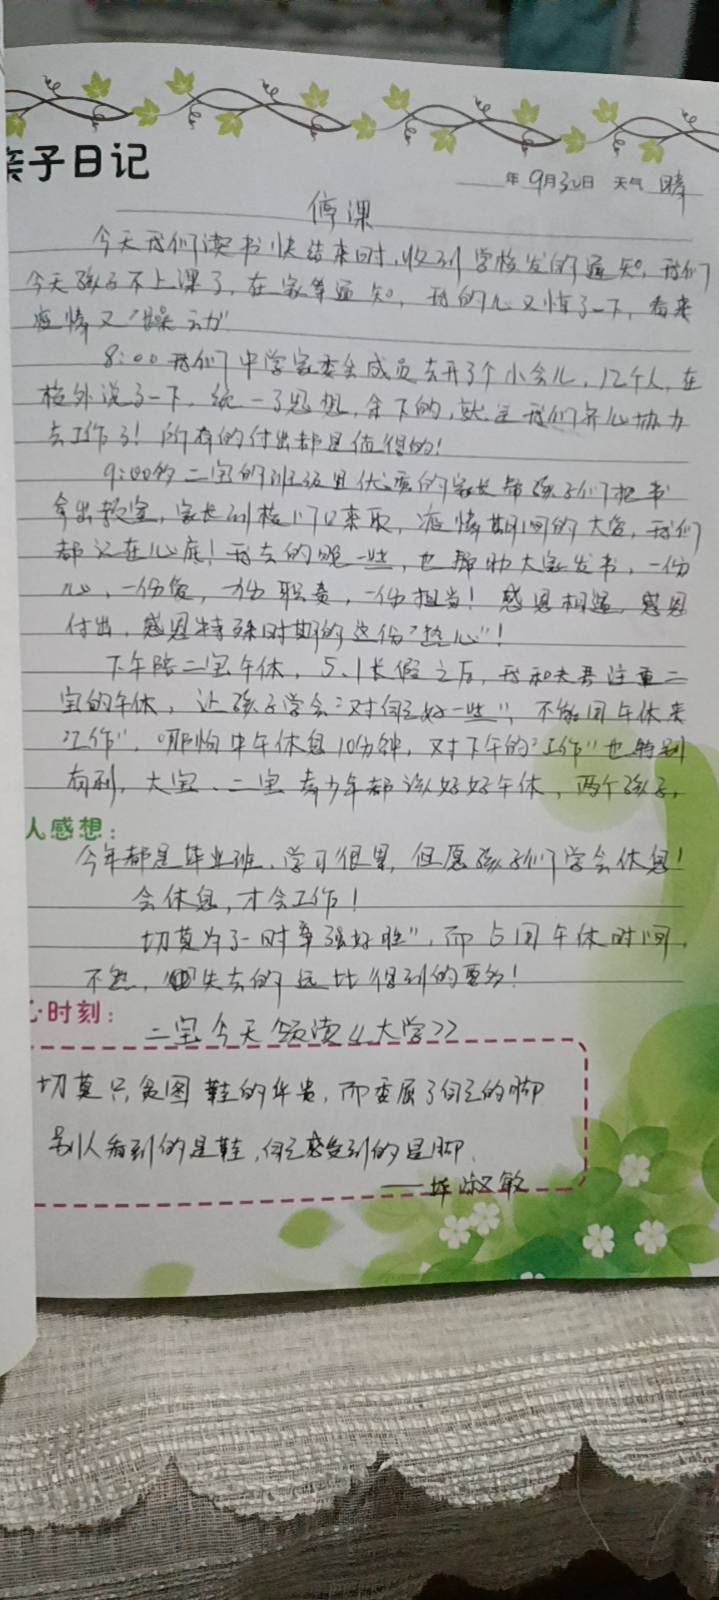 亲子日记
年 9月30日 天气 晴
停课
今天我们读书快结束时,收到学校发的通知,我们
今天孩子不上课了,在家等通知,我的心又惊了一下,看来
疫情又"躁动"
8:00我们中学家委会成员去开了个小会儿,12个人,在
校外说了一下,统一了思想,余下的,就是我们齐心协力
去工作了!所有的付出都是值得的!
9:00多二宝的班级且优秀的家长帮孩子们把书
拿出教室,家长到校门口来取,疫情期间的大爱,我们
都记在心底!我去的晚一些,也帮助大家发书,一份
心,一份爱,一份职责,一份担当!感恩相遇,感恩
付出,感恩特殊时期的这份"热心"!
下午陪二宝午休,5.1长假之后,我和夫君注重二
宝的午休,让孩子学会"对自己好一些",不能用午休来
"工作",哪怕中午休息10分钟,对下午的"工作"也特别
有利,大宝、二宝青少年都该好好午休,两个孩子,
人感想:
今年都是毕业班,学习很累,但愿孩子们学会休息!
会休息,才会工作!
切莫为了一时"争强好胜",而占用午休时间,
不然,失去的远比得到的要多!
心·时刻:
二宝今天领读《大学》
切莫只贪图鞋的华贵,而委屈了自己的脚
别人看到的是鞋,自己感受到的是脚.
——毕淑敏